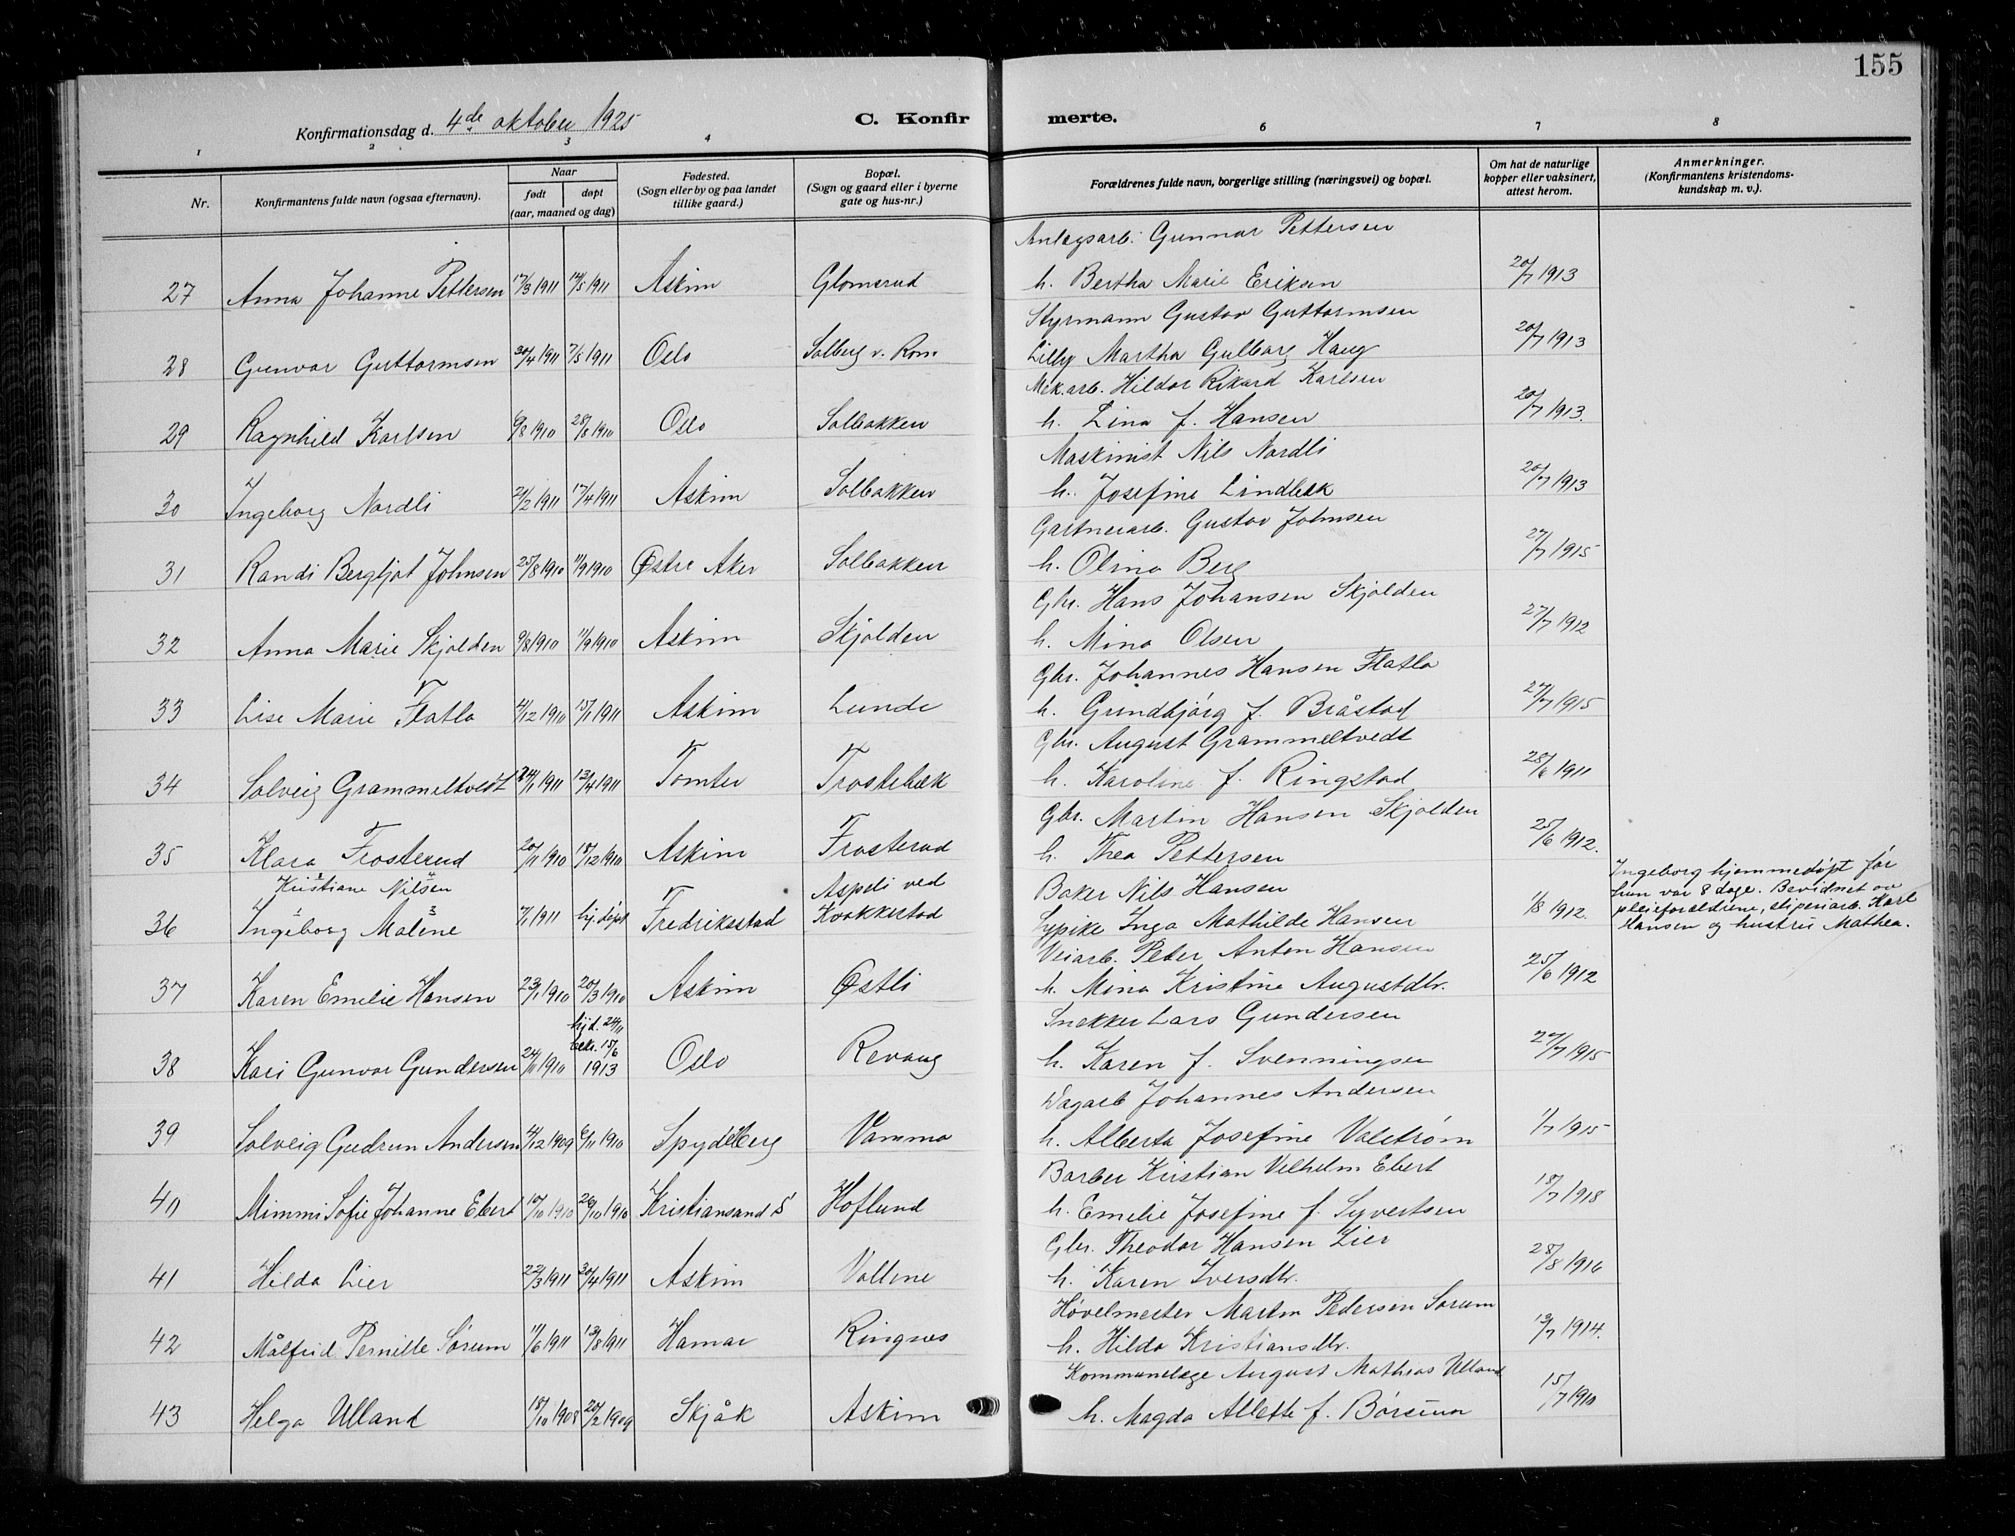 155
Konfirmationsdag d. 4de oktober 1925 C. Konfirmerte.
1 2 3 4 6 7 8
Nr. Konfirmantens fulde navn (ogsaa efternavn). Naar født døpt (aar, maaned og dag) Fødested. (Sogn eller by og paa landet tillike gaard.) Bopæl. (Sogn og gaard eller i byerne gate og hus-nr.) Forældrenes fulde navn, borgerlige stilling (næringsvei) og bopæl. Om hat de naturlige kopper eller vaksinert, attest herom. Anmerkninger. (Konfirmantens kristendomskundskap m. v.).
Anlegsarb. Gunnar Pettersen
27 Anna Johanne Pettersen 17/3 1911 14/5 1911 Askim Glomsrud h. Bertha Marie Eriksen 20/7 1913
Styrmann Gustav Guttormsen
28 Gunvor Guttormsen 30/4 1911 7/5 1911 Oslo Solberg v. Rom Lilly Martha Gulborg Haug 20/7 1913
Mek.arb. Hildor Rikard Karlsen
29 Ragnhild Karlsen 6/8 1910 28/8 1910 Oslo Solbakken h. Lina f. Hansen 20/7 1913.
Maskinist Nils Nordli
30 Ingeborg Nordli 21/2 1911 17/4 1911 Askim Solbakken h. Josefine Lindbæk 20/7 1913
Gartnerarb. Gustav Johnsen
31 Randi Bergljot Johnsen 25/8 1910 11/9 1910 Østre Aker Solbakken h. Olina Berg 27/7 1915
Gbr. Hans Johansen Skjolden
32 Anna Marie Skjolden 9/8 1910 11/9 1910 Askim Skjolden h. Mina Olsen 27/7 1912
Gbr. Johannes Hansen Flatla
33 Lise Marie Flatla 4/12 1910 15/1 1911 Askim Lunde h. Grindbjörg f. Bråstad 27/7 1915
Gbr. August Grammeltvedt
34 Solveig Grammeltvedt 24/1 1911 13/4 1911 Tomter Trostebæk h. Karoline f. Ringstad 28/6 1911
Gbr. Martin Hansen Skjolden
35 Klara Frosterud 20/11 1910 18/12 1910 Askim Frosterud h. Thea Pettersen 25/6 1912.
Kristiane Nilsen Aspeli ved Baker Nils Hansen
36 Ingeborg Malene 7/1 1911 hj. døpt Fredriksstad Kvakkestad Sypike Inga Mathilde Hansen 1/8 1912. Ingeborg hjemmedöpt før hun var 8 dage. Bevidnet av pleieforældrene, sliperiarb. Karl Hansen og hustru Mathea.
Veiarb. Peder Anton Hansen
37 Karen Emilie Hansen 23/1 1910 20/3 1910 Askim Østli h. Mina Kristine Augustdtr. 25/6 1912
Snekker Lars Gundersen
38 Kari Gunvor Gundersen 24/11 1910 hjd. 24/11 bekr. 15/6 1913 Oslo Revaug h. Karen f. Svenningsen 27/7 1915
Dagarb Johannes Andersen
39 Solveig Gudrun Andersen 4/12 1909 6/11 1910 Spydeberg Vamma h. Alberta Josefine Valstrøm 1/7 1915
Barber Kristian Vilhelm Ebert
40 Mimmi Sofie Johanne Ebert 10/10 1910 26/10 1910 Kristiansand S Hoflund h. Emilie Josefine f. Syvertsen 18/7 1918
Gbr. Theodor Hansen Lier
41 Hilda Lier 22/3 1911 30/4 1911 Askim Vollene h. Karen Iversdtr. 28/8 1916
Høvelmester Martin Pedersen Sörum
42 Målfrid Pernille Sörum 11/6 1911 13/8 1911 Hamar Ringnes h. Hilda Kristiansdtr. 13/7 1914.
Kommunelæge August Mathias Ulland
43 Helga Ulland 18/10 1908 20/2 1909 Skjåk Askim h. Magda Allette f. Børsum 15/7 1910